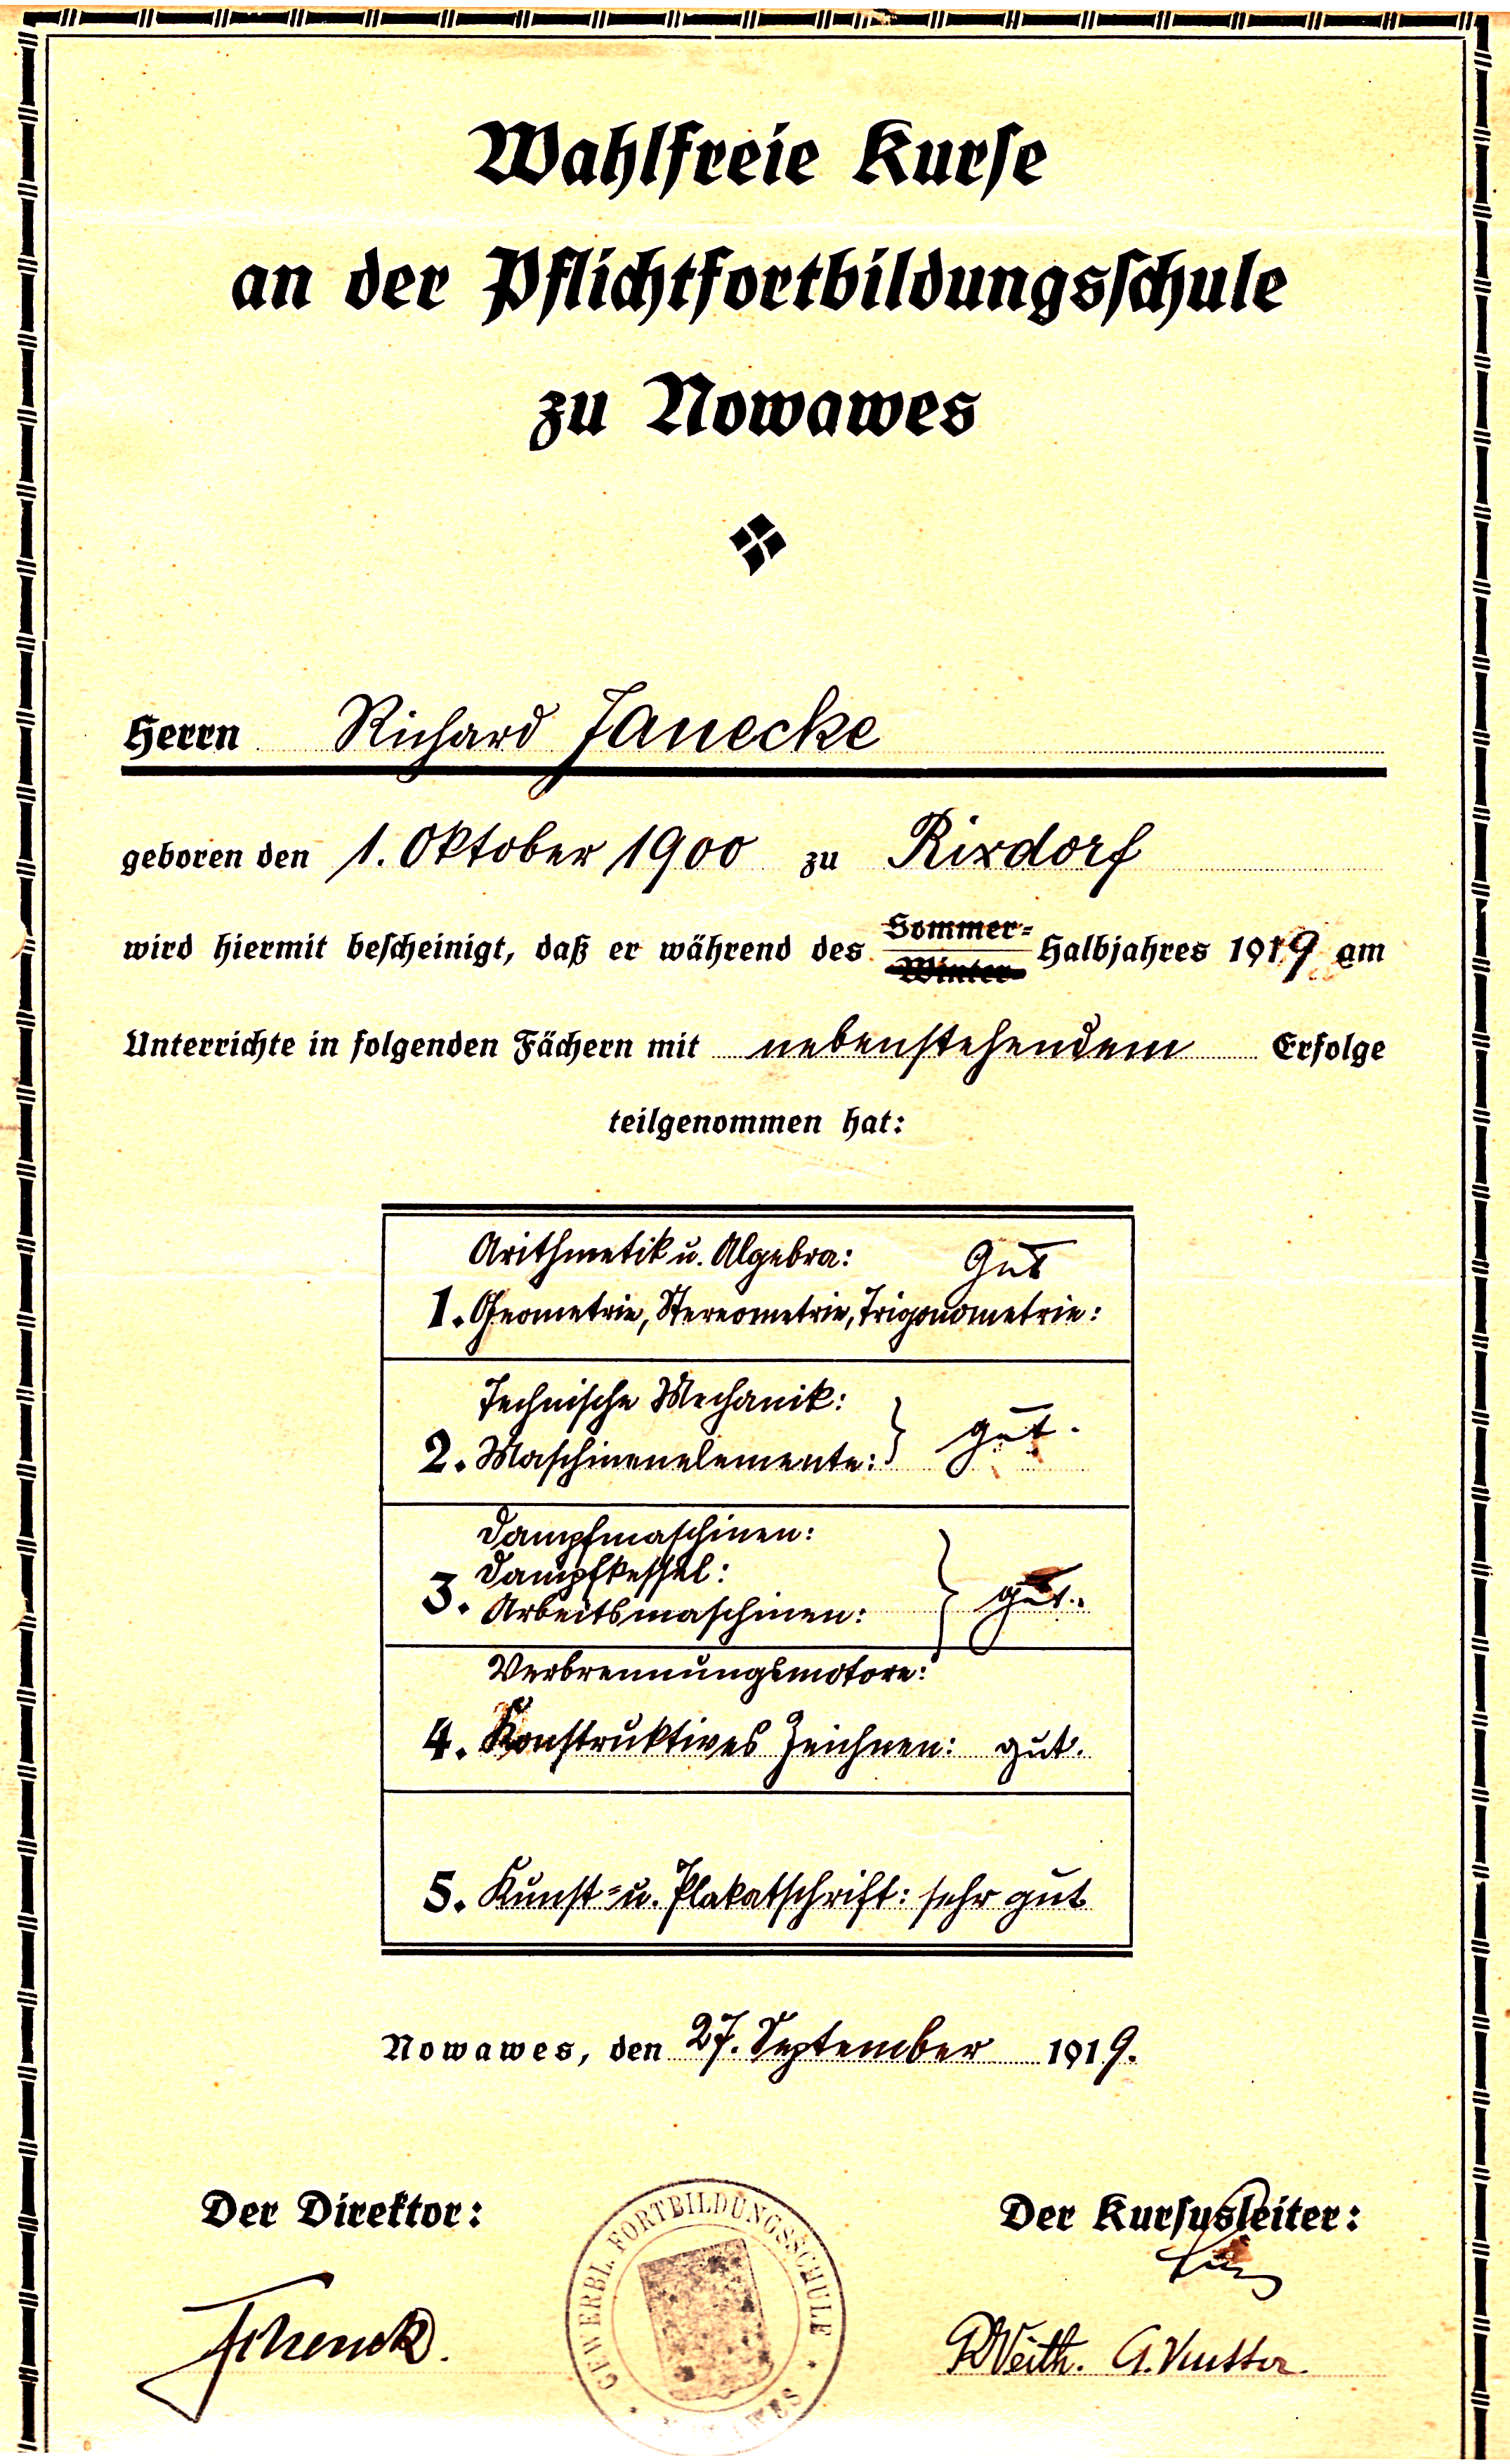 Wahlfreie Kurse
an der Pflichtfortbildungsschule
zu Nowawes
Herrn Richard Janecke
geboren den 1. Oktober 1900 zu Rixdorf
wird hiermit bescheinigt, daß er während des Sommer=
Winter Halbjahres 1919 am
Unterrichte in folgenden Fächern mit nebenstehendem Erfolge
teilgenommen hat:
Arithmetik u. Algebra: Gut
1. Geometrie, Stereometrie, Trigonometrie:
Technische Mechanik:
2. Maschinenelemente: } gut.
Dampfmaschinen:
Dampfkessel:
3. Arbeitsmaschinen: } gut.
Verbrennungsmotore:
4. Konstruktives Zeichnen: gut.
5. Kunst= u. Plakatschrift: sehr gut
Nowawes, den 27. September 1919.
Der Direktor:
Der Kursusleiter:
GEWERBL. FORTBILDUNGSSCHULE
Schenck.
Veith.